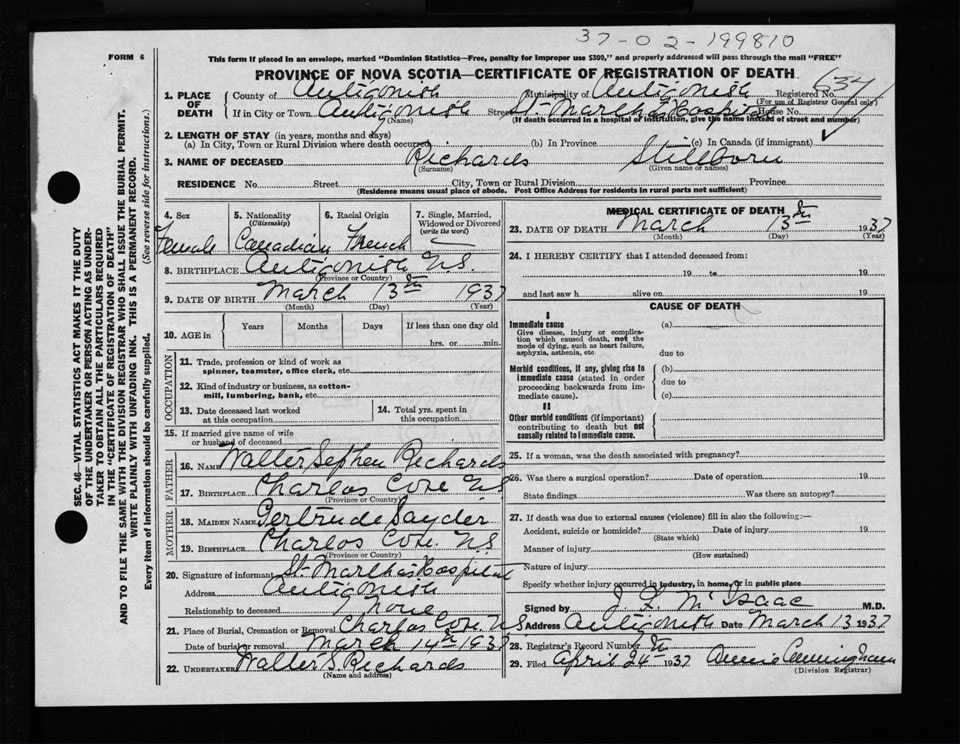 37-02-199810
FORM 6
This form if placed in an envelope, marked "Dominion Statistics—Free, penalty for improper use $300," and properly addressed will pass through the mail "FREE"
PROVINCE OF NOVA SCOTIA—CERTIFICATE OF REGISTRATION OF DEATH
1. PLACE OF DEATH { County of Antigonish Municipality of Antigonish Registered No. 634
(For use of Registrar General only)
If in City or Town Antigonish Street St. Martha's Hospital House No.
(Name) (If death occurred in a hospital or institution, give the name instead of street and number)
2. LENGTH OF STAY (in years, months and days)
(a) In City, Town or Rural Division where death occurred (b) In Province (c) In Canada (if immigrant)
3. NAME OF DECEASED Richards Stillborn
(Surname) (Given name or names)
RESIDENCE No. Street City, Town or Rural Division Province
(Residence means usual place of abode. Post Office Address for residents in rural parts not sufficient)
4. Sex Female
5. Nationality (Citizenship) Canadian
6. Racial Origin French
7. Single, Married, Widowed or Divorced (write the word) —
8. BIRTHPLACE Antigonish N.S.
(Province or Country)
9. DATE OF BIRTH March 13th 1937
(Month) (Day) (Year)
10. AGE in { Years Months Days If less than one day old
hrs. or min.
OCCUPATION
11. Trade, profession or kind of work as
spinner, teamster, office clerk, etc.
12. Kind of industry or business, as cotton-
mill, lumbering, bank, etc.
13. Date deceased last worked
at this occupation
14. Total yrs. spent in
this occupation
15. If married give name of wife
or husband of deceased
FATHER
16. Name Walter Sephen Richards
17. Birthplace Charlos Cove N.S.
(Province or Country)
MOTHER
18. Maiden Name Gertrude Sayder
19. Birthplace Charlos Cove. N.S
(Province or Country)
20. Signature of informant St. Martha's Hospital
Address Antigonish
Relationship to deceased None
21. Place of Burial, Cremation or Removal Charlos Cove. N.S.
Date of burial or removal March 14th 1937
22. UNDERTAKER Walter S. Richards
(Name and address)
MEDICAL CERTIFICATE OF DEATH
23. DATE OF DEATH March 13th 1937
(Month) (Day) (Year)
24. I HEREBY CERTIFY that I attended deceased from:
19 to 19
and last saw h alive on 19
CAUSE OF DEATH
I
Immediate cause (a)
Give disease, injury or complica-
tion which caused death, not the
mode of dying, such as heart failure,
asphyxia, asthenia, etc. due to
Morbid conditions, if any, giving rise to (b)
immediate cause (stated in order due to
proceeding backwards from im-
mediate cause). (c)
II
Other morbid conditions (if important)
contributing to death but not
causally related to immediate cause.
25. If a woman, was the death associated with pregnancy?
26. Was there a surgical operation? Date of operation 19
State findings Was there an autopsy?
27. If death was due to external causes (violence) fill in also the following:—
Accident, suicide or homicide? Date of injury 19
(State which)
Manner of injury
(How sustained)
Nature of injury
Specify whether injury occurred in industry, in home, or in public place
Signed by J. F. McIsaac M.D.
Address Antigonish Date March 13 1937
28. Registrar's Record Number
29. Filed April 24th 1937 Annie Cunningham
(Division Registrar)
SEC. 46—VITAL STATISTICS ACT MAKES IT THE DUTY
OF THE UNDERTAKER OR PERSON ACTING AS UNDER-
TAKER TO OBTAIN ALL THE PARTICULARS REQUIRED
IN THE "CERTIFICATE OF REGISTRATION OF DEATH"
AND TO FILE THE SAME WITH THE DIVISION REGISTRAR WHO SHALL ISSUE THE BURIAL PERMIT.
WRITE PLAINLY WITH UNFADING INK. THIS IS A PERMANENT RECORD.
Every item of information should be carefully supplied. (See reverse side for instructions.)